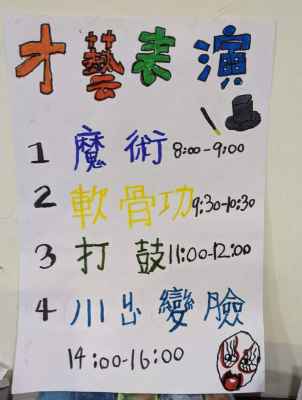 才藝表演
1 魔術 8:00-9:00
2 軟骨功 9:30-10:30
3 打鼓 11:00-12:00
4 川出變臉
14:00-16:00